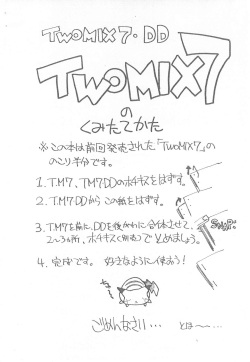 TWOMIX7・DD
TWOMIX7
の
くみたてかた
※この本は前回発売された「TWOMIX7」の
のこり半分です。
1. T.M7、T.M7DDのホチキスをはずす。
2. T.M7DDから この紙をはずす。
3. T.M7を前に、DDを後ろに合体させて、
2〜3ヵ所、ホチキス(別売)でとめましょう。
4. 完成です。 好きなように使おう!
ごめんなさい…